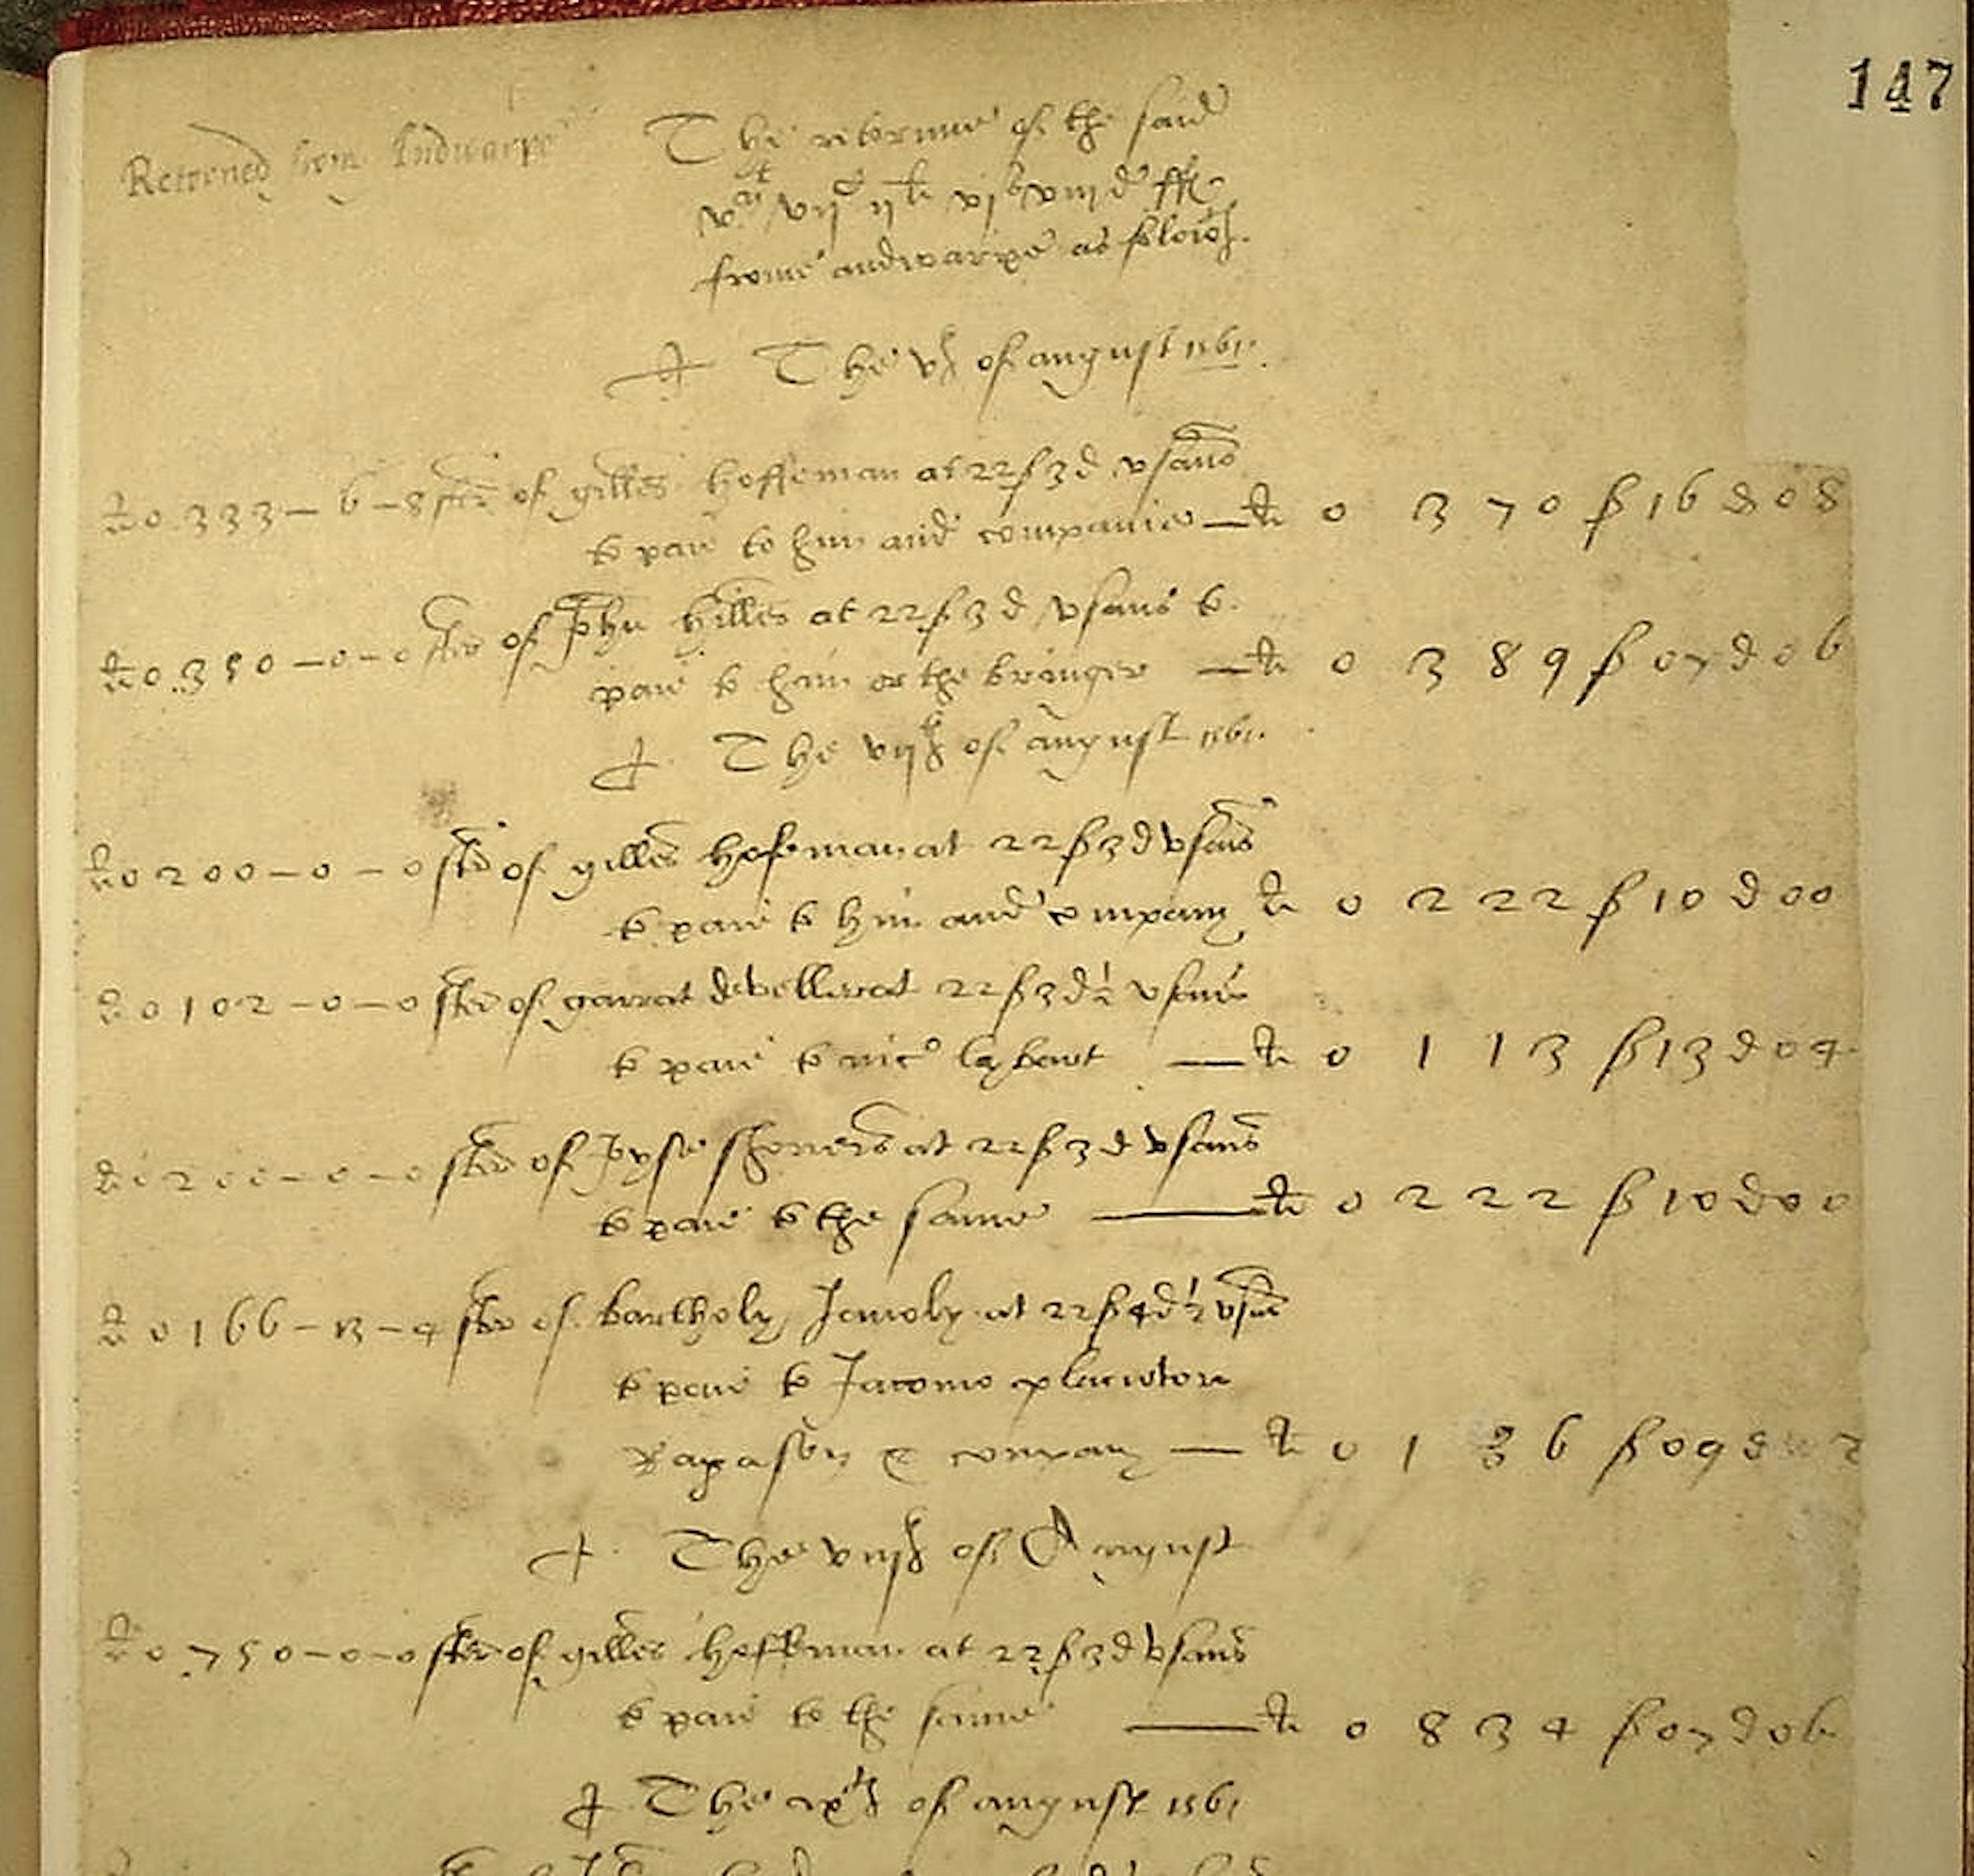 147
Retorned from Andwarpe
The retorne of the said
frome andwarpe as foloith.
The vth of august 1561.
li 0333 - 6 - 8 ster of gilles hoffeman at 22 s 3 d vsans
to paie to him and companie — li 0 3 7 0 s 16 d 08
li 0350 - 0 - 0 ster of John hilles at 22 s 3 d vsans to
paie to him or the bringer — li 0 3 8 9 s 07 d 06
The vijth of august 1561.
li 0200 - 0 - 0 ster of gilles hofeman at 22 s 3 d vsans
to paie to him and company li 0 2 2 2 s 10 d 00
li 0102 - 0 - 0 ster of garrat at 22 s 3 d ½ vsans
to paie to nico — li 0 1 1 3 s 13 d 04
li 0200 - 0 - 0 ster of at 22 s 3 d vsans
to paie to the same — li 0 2 2 2 s 10 d 00
li 0166 - 13 - 4 ster of bartholy at 22 s 4 d ½ vsans
to paie to Jacomo
& company — li 0 1 6 s 09 d
The viijth of August
li 0750 - 0 - 0 ster of gilles hoffman at 22 s 3 d vsans
to paie to the same — li 0 8 3 4 s 07 d 06
The ixth of august 1561